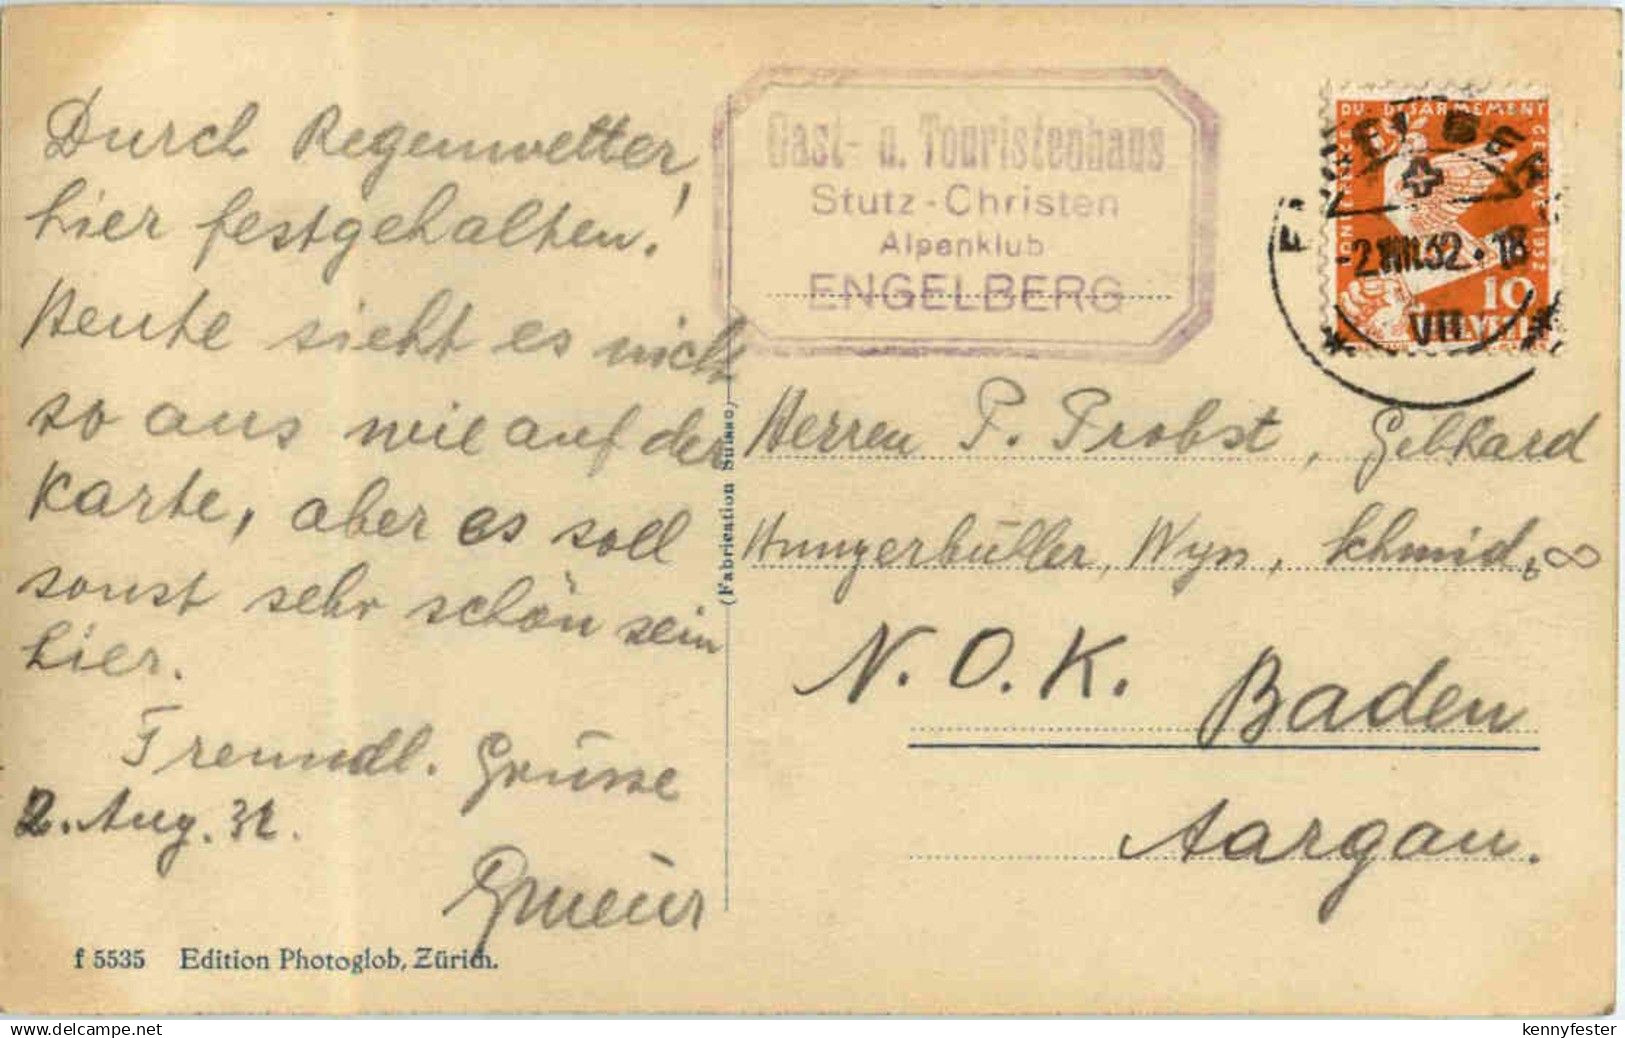 Durch Regenwetter,
hier festgehalten!
Heute sieht es nicht
so aus wie auf der
Karte, aber es soll
sonst sehr schön sein
hier.
Freundl. Grüsse
2. Aug. 32.
f 5535 Edition Photoglob, Zürich.
(Fabrication Suisse)
Gast- u. Touristenhaus
Stutz-Christen
Alpenklub
ENGELBERG
CONFERENCE DU DESARMEMENT GENEVE 1932
10
HELVETIA
ENGELBERG
-2.VIII.32.-18
VII
Herren P. Probst, Gebhard
Hungerbühler, Wyss, Schmid,
N.O.K. Baden
Aargau.
kennyfester